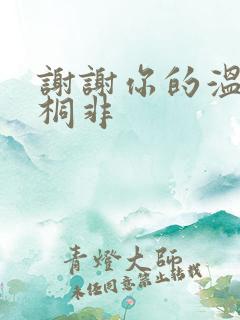 謝謝你的溫
桐非
青燈大師
未任同意禁止轉載